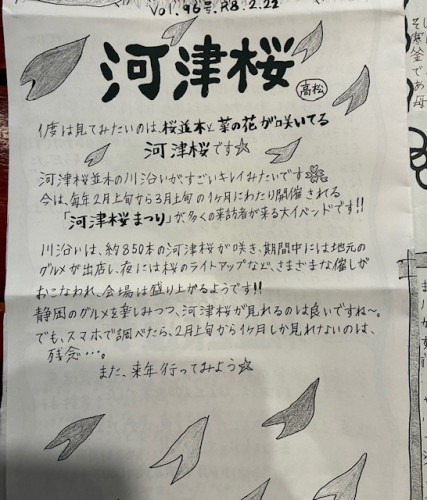 Vol.96号.R8.2.22
河津桜
高松
1度は見てみたいのは、桜並木と菜の花が咲いてる
河津桜です☆
河津桜並木の川沿いがすごいキレイみたいです
今は、毎年2月上旬から3月上旬の1ヶ月にわたり開催される
「河津桜まつり」が多くの来訪者が来る大イベントです!!
川沿いは、約850本の河津桜が咲き、期間中には地元の
グルメが出店し、夜には桜のライトアップなど、さまざまな催しが
おこなわれ、会場は盛り上がるようです!!
静岡のグルメを楽しみつつ、河津桜が見れるのは良いですね〜。
でも、スマホで調べたら、2月上旬から1ヶ月しか見れないのは、
残念…。
また、来年行ってみよう☆